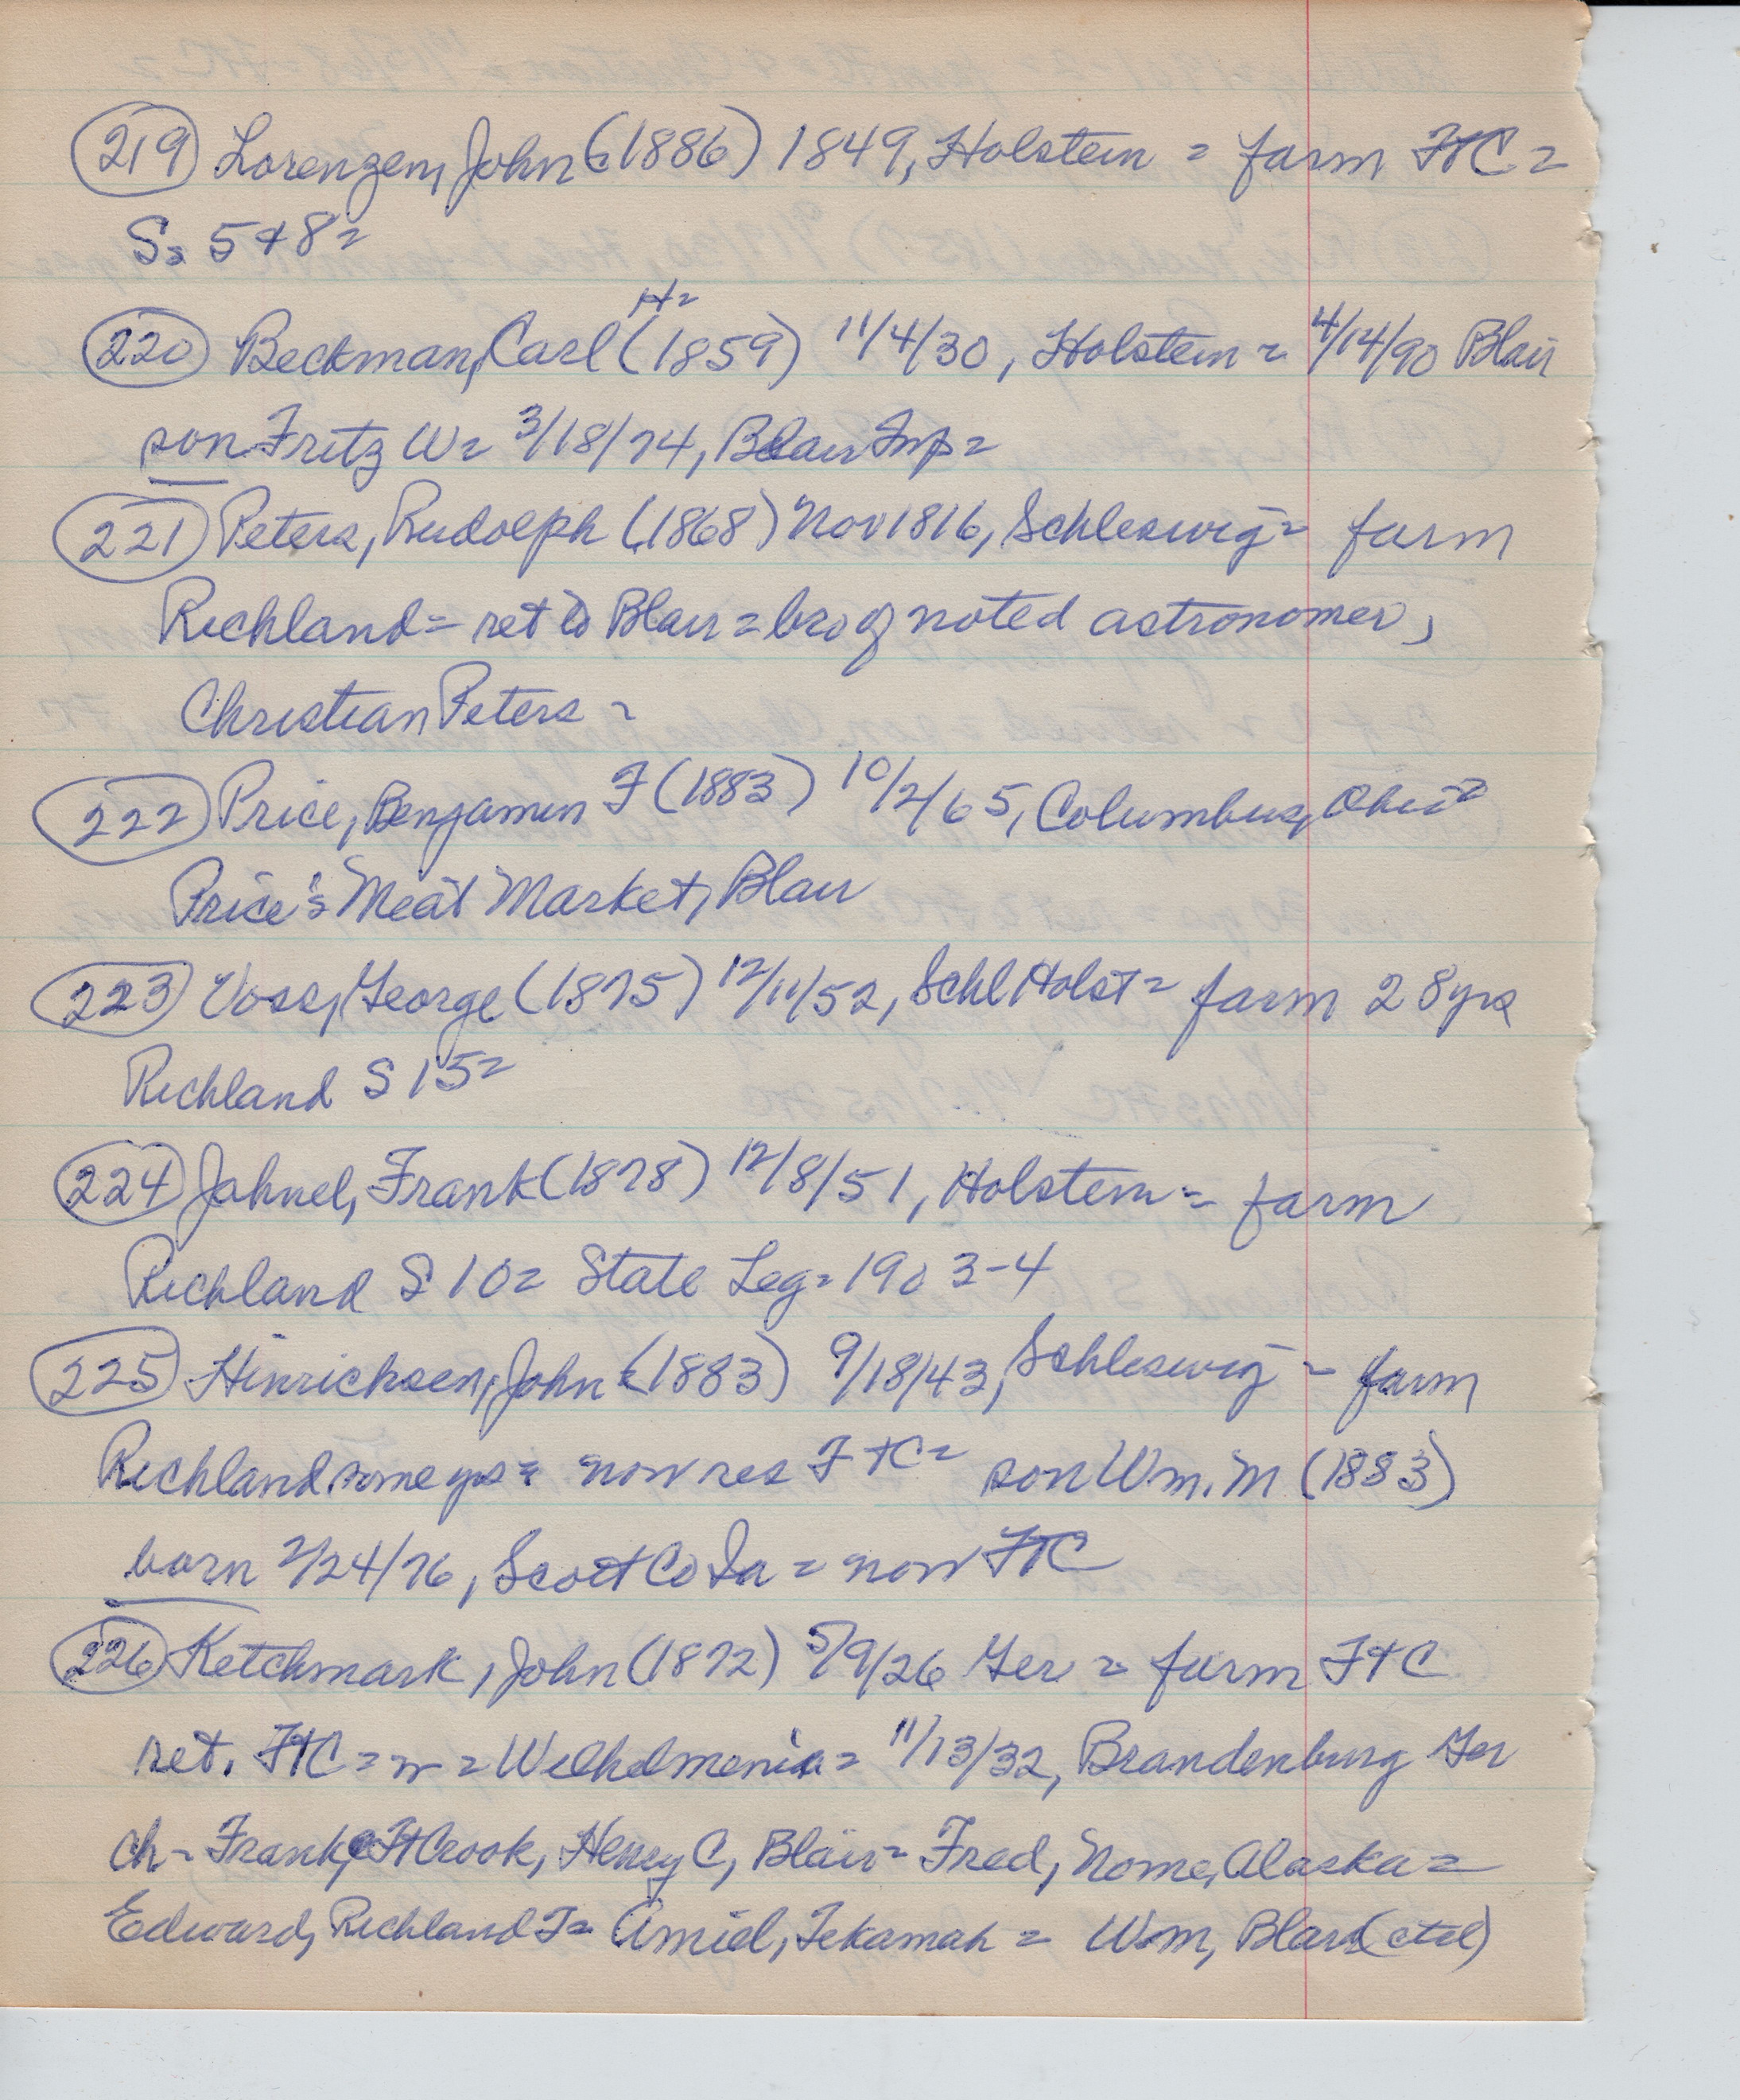 219 Lorenzen, John (1886) 1849, Holstein = farm FtC =
S = 5 + 8 =
H =
220 Beckman, Carl (1859) 11/4/30, Holstein = 4/14/90 Blair
son Fritz W = 3/18/74, Blair Tnp =
221 Peters, Rudolph (1868) Nov 1816, Schleswig = farm
Richland = ret to Blair = bro of noted astronomer,
Christian Peters =
222 Price, Benjamin F (1883) 10/2/65, Columbus, Ohio =
Price's Meat Market, Blair
223 Voss, George (1875) 12/11/52, Schl Holst = farm 28 yrs
Richland S 15 =
224 Jahnel, Frank (1878) 12/8/51, Holstein = farm
Richland S 10 = State Leg = 1903-4
225 Hinrichsen, John (1883) 9/18/43, Schleswig = farm
Richland some yrs = now res FtC = son Wm. M (1883)
born 2/24/76, Scott Co Ia = now FtC
226 Ketchmark, John (1872) 5/9/26 Ger = farm FtC
ret. FtC = w = Wilhelmenia = 11/13/32, Brandenburg Ger
ch = Frank, Ft Crook, Henry C, Blair = Fred, Nome, Alaska =
Edward, Richland T = Amiel, Tekamah = Wm, Blair